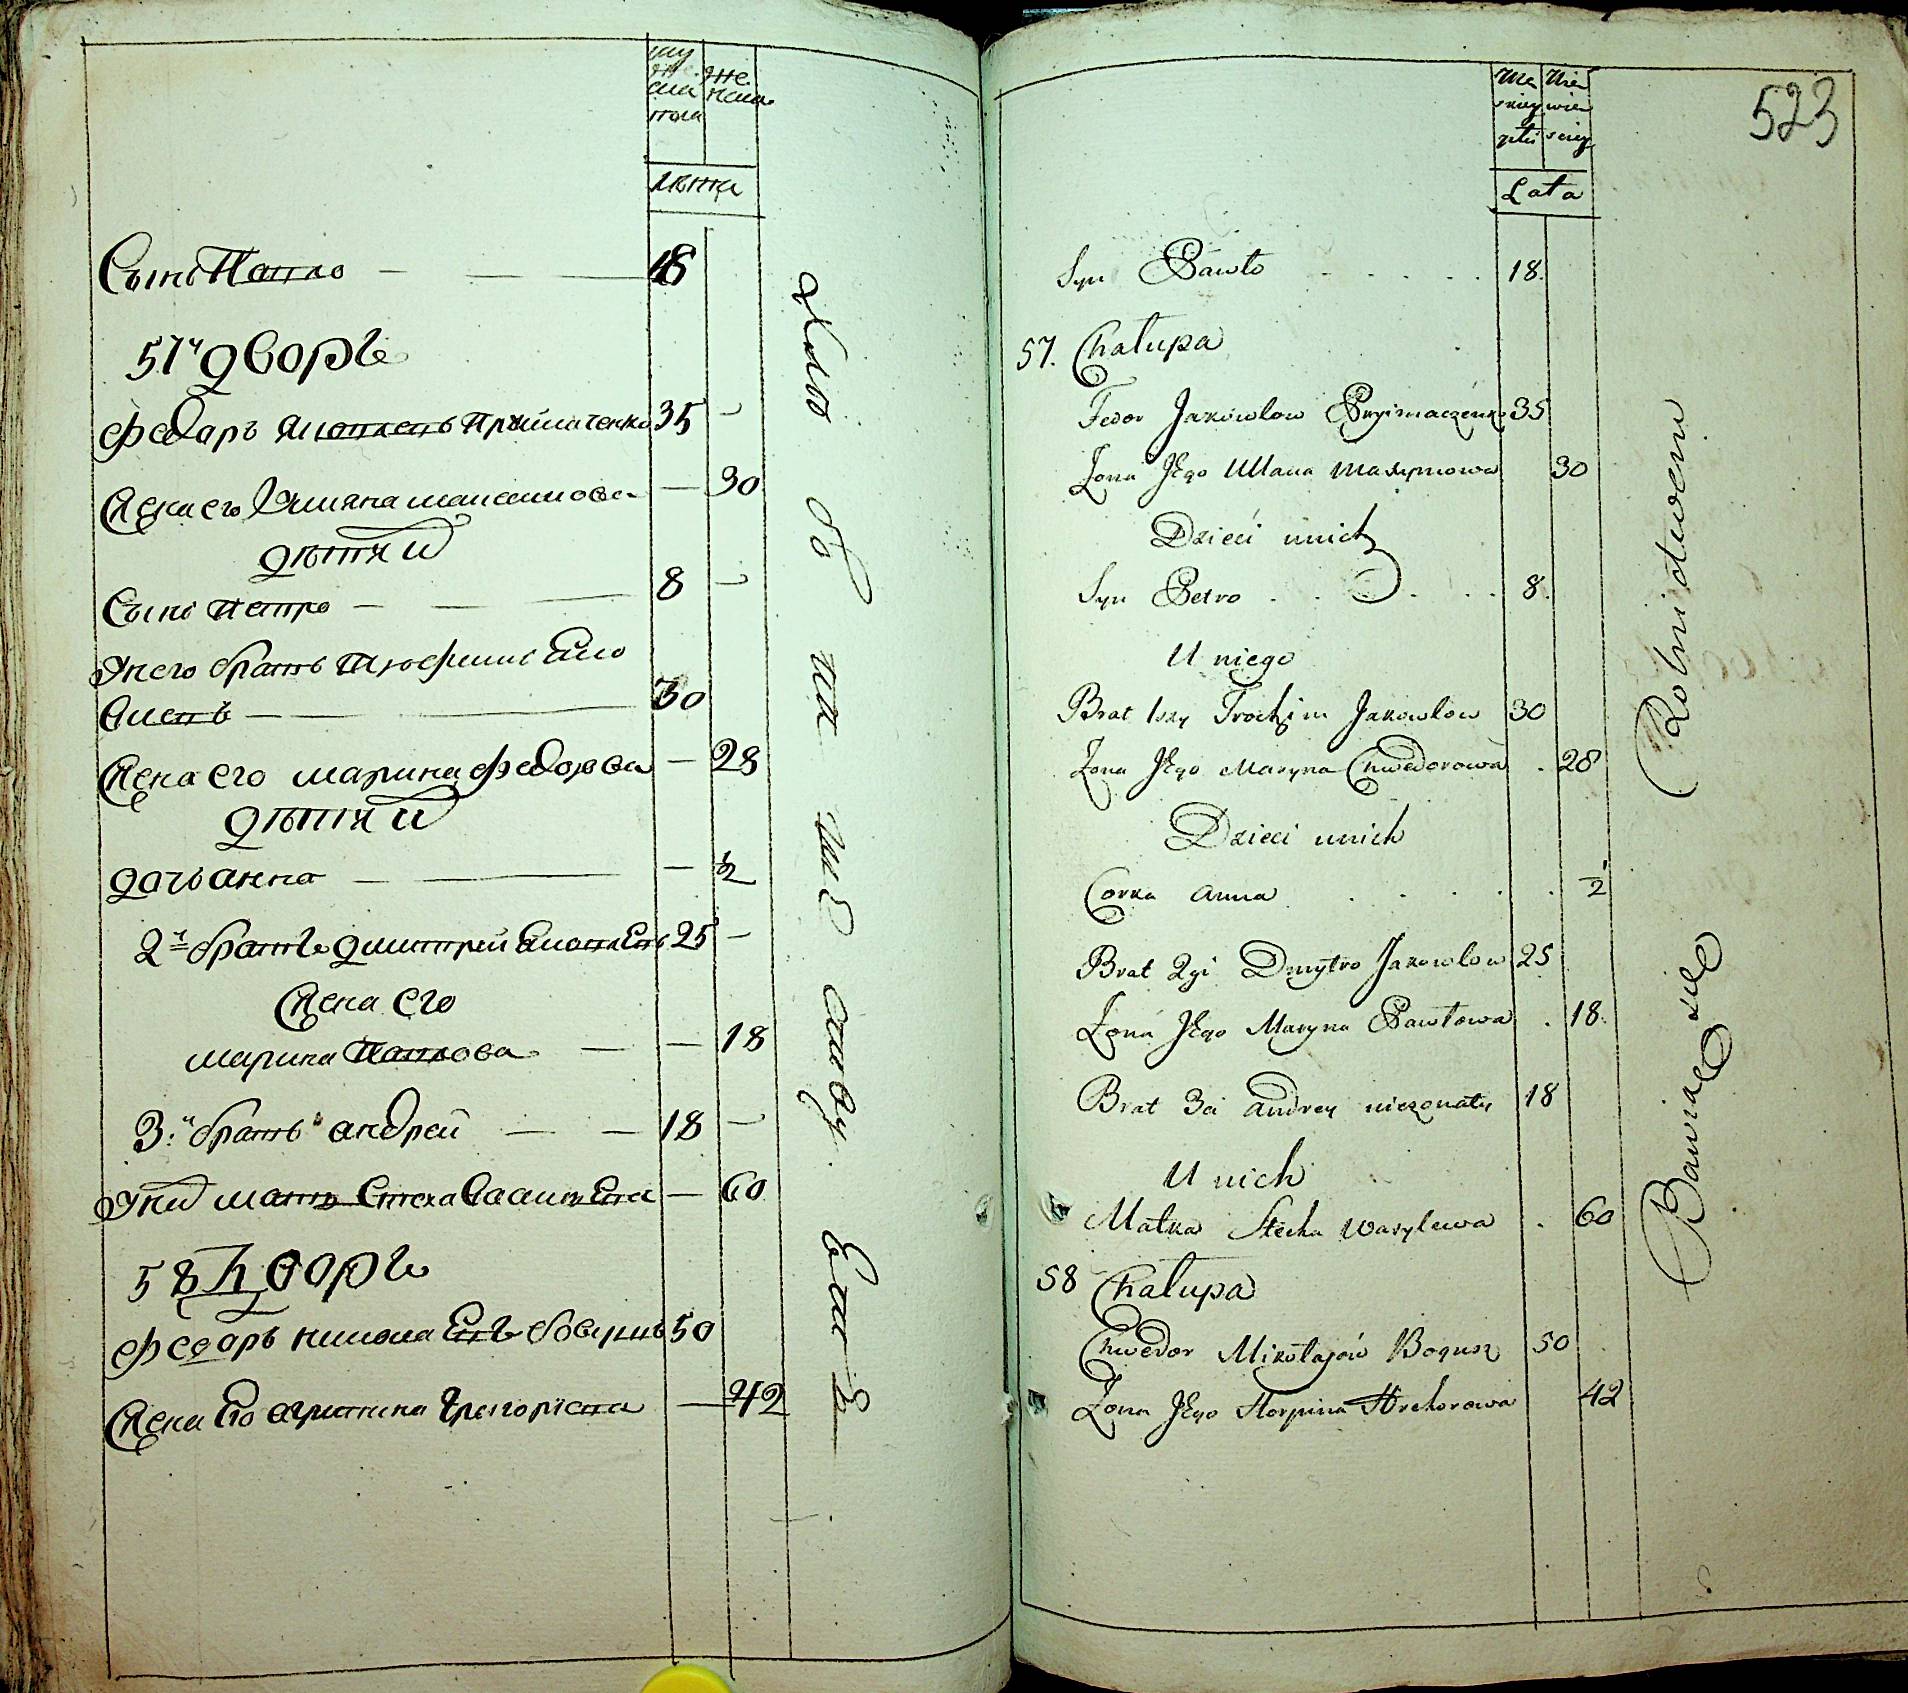 му
же
ска
пола
же
нска
лѣта
Сынъ Павло — — 18
57й дворъ
Федоръ Яковлевъ Приймаченко 35 —
Жена его Уляна Максимова — 30
дѣти ихъ
Сынъ Петро — — 8 —
Унего братъ Трофимъ Яко
влевъ — — 30
Жена его Марина Федорова — 28
дѣти ихъ
дочь анна — — — ½
2й братъ дмитрей Яковлевъ 25 —
Жена его
Марина Павлова — — 18
3й братъ андрей — — 18 —
Уних мать Стеха Василева — 60
58 дворъ
Федоръ Николаевъ Богушъ 50
Жена Его агрипина Григорiева — 42
523
Mę
skiey
płci
Nie
wie
sciey
Lata
Syn Pawło . . . . . 18.
57. Chałupa
Fedor Jakowlow Pryimaczenko 35
Żona Jego Ullana Maxymowa 30
Dzieci unich
Syn Petro . . . . . 8.
U niego
Brat 1szy Trochim Jakowlow 30
Żona Jego Maryna Chwedorowa . 28
Dzieci unich
Corka Anna . . . . . ½
Brat 2gi Dmytro Jakowlow 25
Żona Jego Maryna Pawłowa . 18.
Brat 3ci Andrey nieżonaty 18
U nich
Matka Stecha Wasylewa . 60
58 Chałupa
Chwedor Mikołajów Bogusz 50
Żona Jego Horpina Hrehorowa 42
Bawią się Rolnictwem